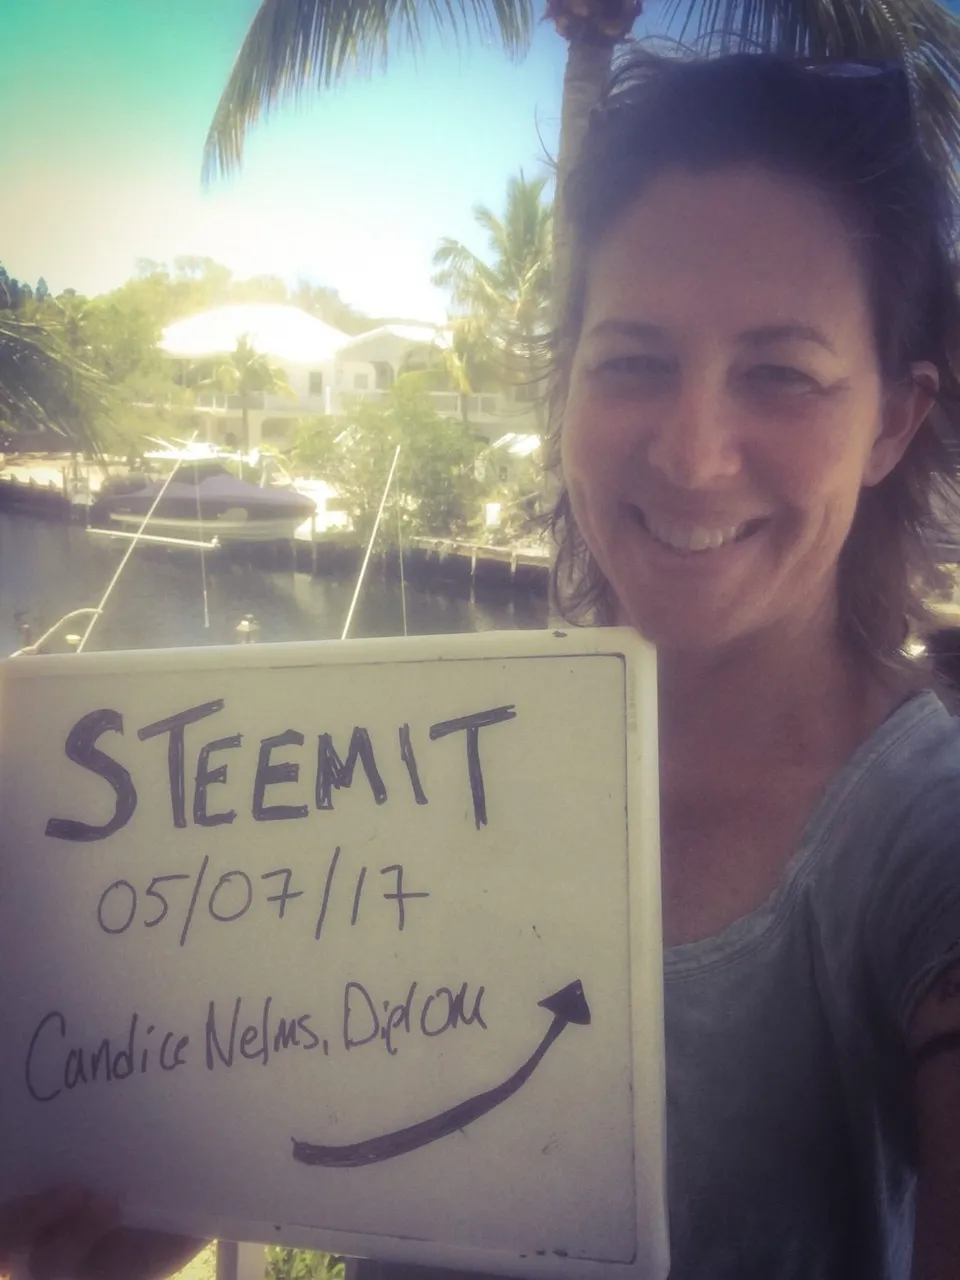 STEEMIT
05/07/17
Candice Nelms, DiplOM